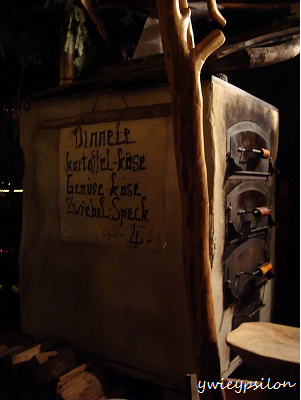 Dinnele
kartoffel-käse
Gemüse-käse
Zwiebel-Speck
ywieypsilon